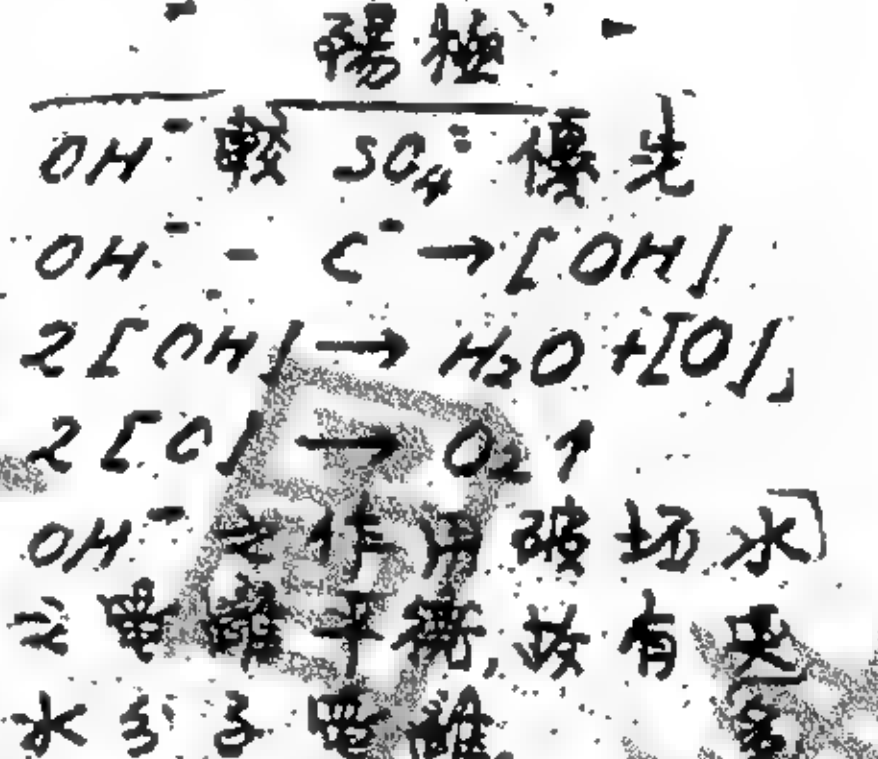 陽極
OH⁻ 較 SO₄⁼ 優先
OH⁻ - e⁻ → [OH]
2[OH] → H₂O + [O],
2[O] → O₂↑
OH⁻ 之作用破坏水
之電離平衡,故有更多
水分子電離